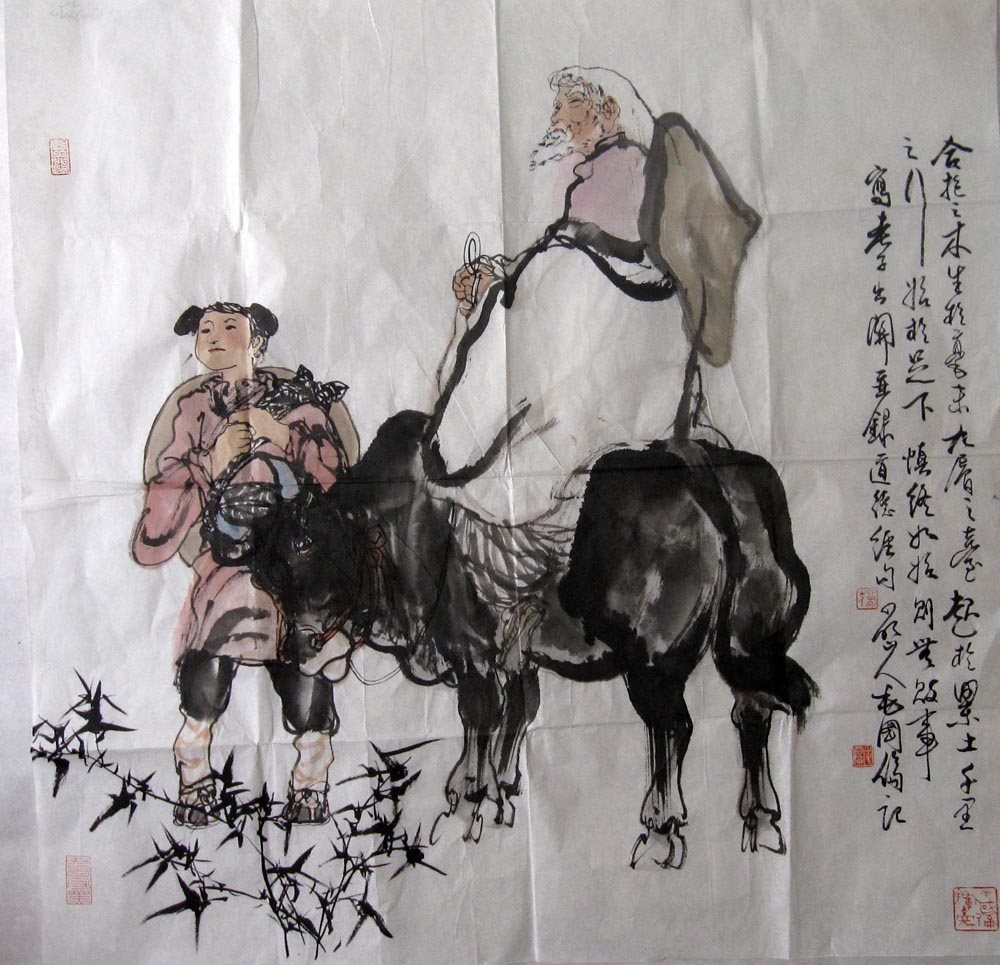 合抱之木生於毫末九層之臺起於累土千里
之行始於足下慎終如始則無敗事
寫老子出關並錄道德經句人國記